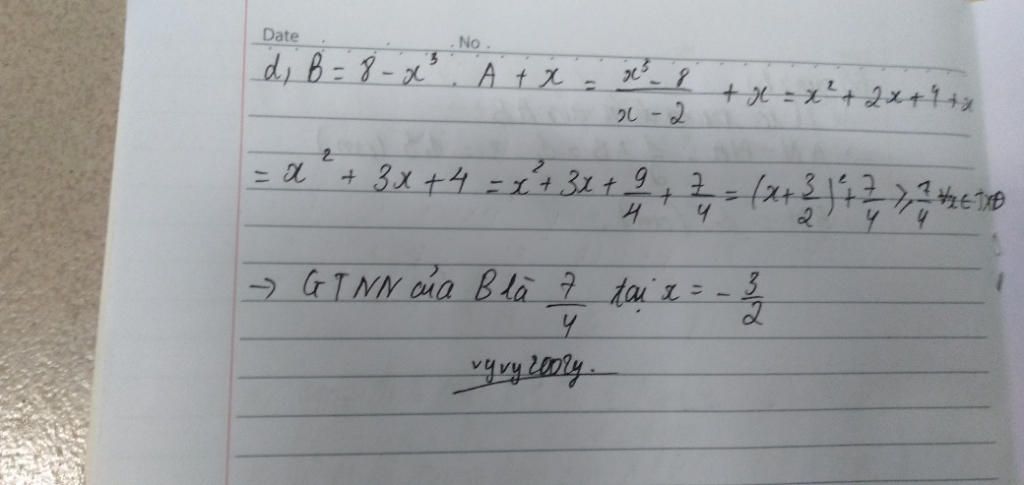 Date No.
d, B = 8 - x³ . A + x = \frac{x³ - 8}{x - 2} + x = x² + 2x + 4 + x
= x² + 3x + 4 = x² + 3x + \frac{9}{4} + \frac{7}{4} = (x + \frac{3}{2})² + \frac{7}{4} ⩾ \frac{7}{4} ∀x ∈ TXĐ
→ GTNN của B là \frac{7}{4} tại x = - \frac{3}{2}
vyvy2002y.